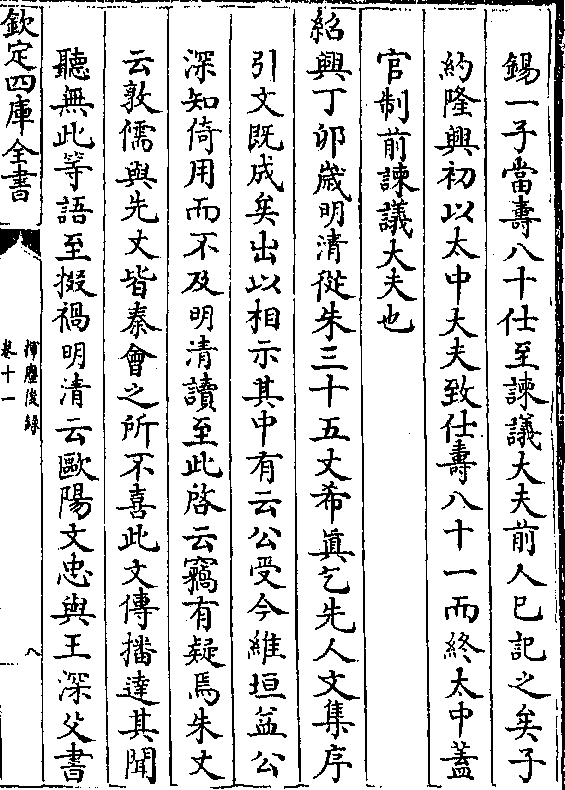 錫一子當壽八十仕至諫議大夫前人已記之矣子
約隆興初以太中大夫致仕壽八十一而終太中蓋
官制前諫議大夫也
紹興丁卯歲明清從朱三十五丈希真乞先人文集序
引文既成矣出以相示其中有云公受今維垣益公
深知倚用而不及明清讀至此啓云竊有疑焉朱丈
云敦儒與先丈皆秦會之所不喜此文傳播達其聞
聽無此等語至掇禍明清云歐陽文忠與王深父書
欽定四庫全書
揮麈後錄
卷十一
八